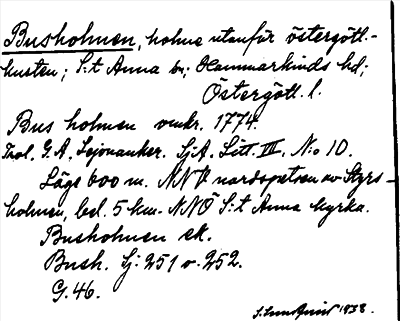 Busholmen, holme utanför östergöt-
kusten; S:t Anna sn; Hammarkinds hd;
Östergötl. l.
Bus holmen omkr. 1774.
G. A. SjA. Litt. III, No 10.
Läge 600 m. NNV nordspetsen av Styrs-
holmen, bel. 5 km. NNÖ S:t Anna kyrka.
Busholmen ek.
Bush. Sj: 251 o. 252.
G. 46.
1938.